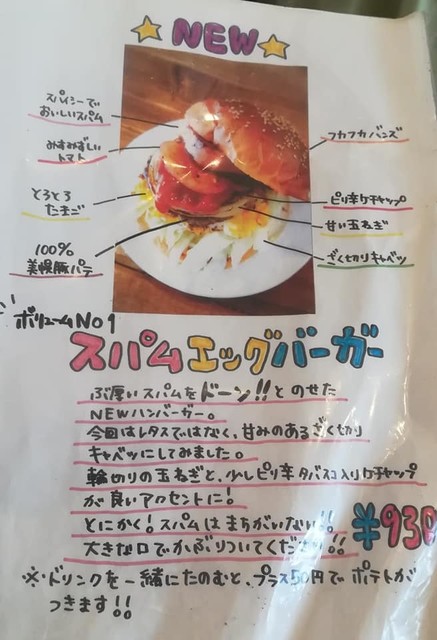 NEW
スパイシーで
おいしいスパム
みずみずしい
トマト
とろとろ
たまご
100%
美幌豚パテ
フカフカバンズ
ピリ辛ケチャップ
甘い玉ねぎ
ざく切りキャベツ
ボリュームNo1
スパムエッグバーガー
ぶ厚いスパムをドーン!!とのせた
NEWハンバーガー。
今回はレタスではなく、甘みのあるざく切り
キャベツにしてみました。
輪切りの玉ねぎと、少しピリ辛タバスコ入りケチャップ
が良いアクセントに!
とにかく!スパムはまちがいない!!
大きな口でかぶりついてください!!
¥930
※・ドリンクを一緒にたのむと、プラス50円でポテトが
つきます!!